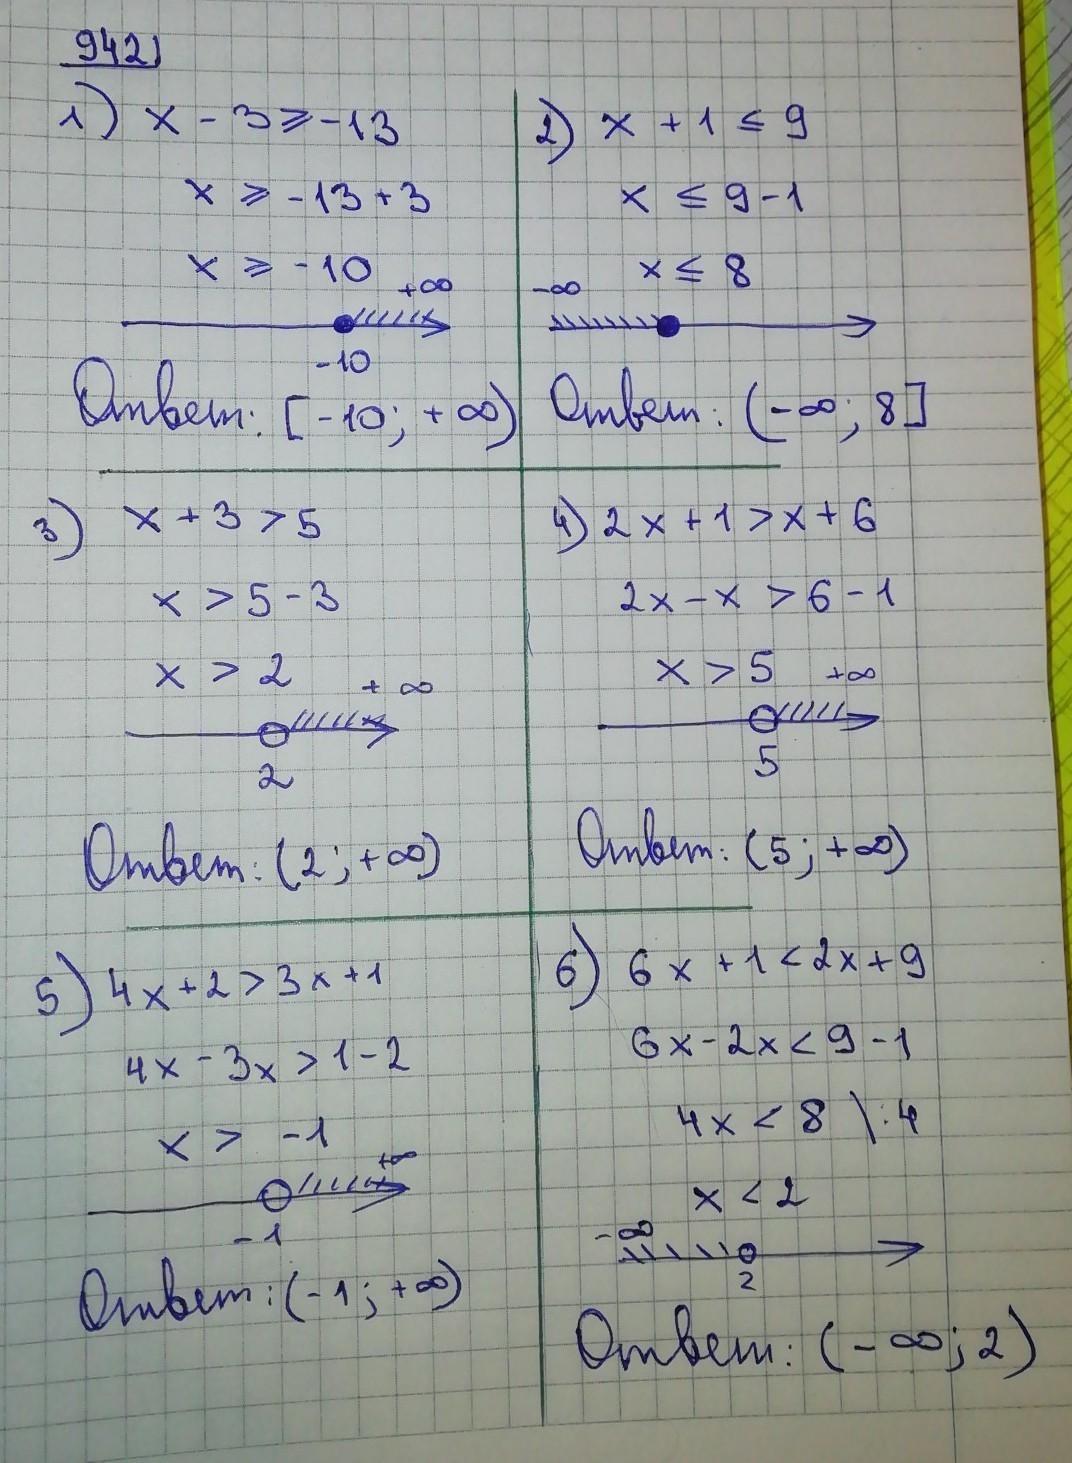 942)
1) x - 3 ⩾ -13
x ⩾ -13 + 3
x ⩾ -10
+∞
-10
Ответ: [-10; +∞)
2) x + 1 ≤ 9
x ≤ 9 - 1
x ≤ 8
-∞
Ответ: (-∞; 8]
3) x + 3 > 5
x > 5 - 3
x > 2
+∞
2
Ответ: (2; +∞)
4) 2x + 1 > x + 6
2x - x > 6 - 1
x > 5
+∞
5
Ответ: (5; +∞)
5) 4x + 2 > 3x + 1
4x - 3x > 1 - 2
x > -1
+∞
-1
Ответ: (-1; +∞)
6) 6x + 1 < 2x + 9
6x - 2x < 9 - 1
4x < 8 \ :4
x < 2
-∞
2
Ответ: (-∞; 2)